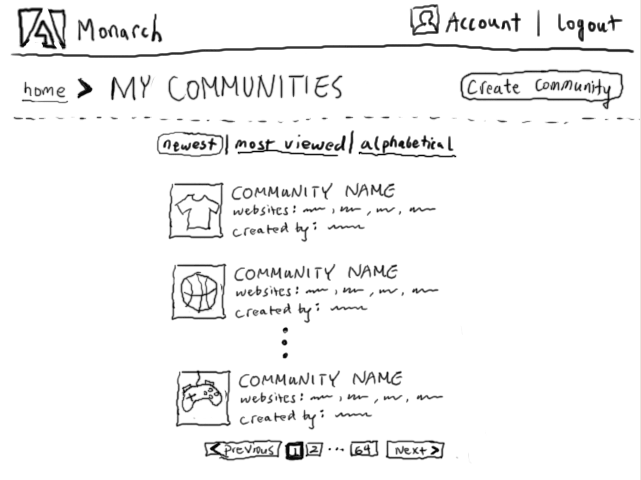 Monarch
Account | Logout
home > MY COMMUNITIES
Create Community
newest | most viewed | alphabetical
COMMUNITY NAME
websites: , , ,
created by:
COMMUNITY NAME
websites: , , ,
created by:
COMMUNITY NAME
websites: , , ,
created by:
< Previous 1 2 ... 64 Next >